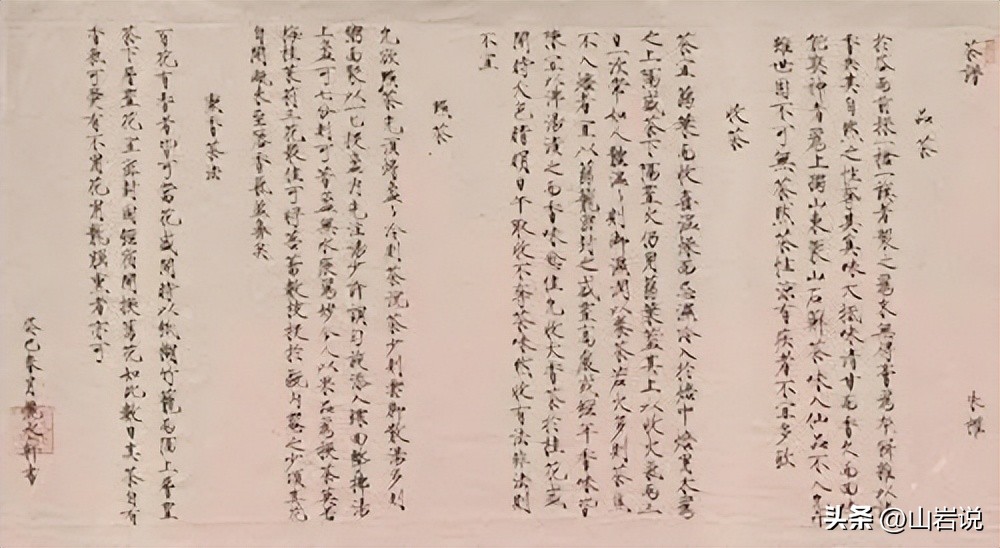 茶譜
朱權
品茶
於谷雨前採一槍一葉者製之為末無得膏為餅雜以諸
香失其自然之性奪其真味大抵味清甘而香久而回
能爽神者為上獨山東蒙山石蘚茶味入仙品不入凡卉
雖世固不可無茶然茶性涼有疾者不宜多飲
收茶
茶宜蒻葉而收喜溫燥而忌濕冷入於焙中焙用木為
之上隔盛茶下隔置火仍用蒻葉蓋其上以收火氣兩三
日一次常如人體溫溫則御濕潤以養茶若火多則茶焦
不入焙者宜以蒻籠密封之盛置高處或經年香味皆
陳宜以沸湯漬之而香味愈佳凡收天香茶於桂花盛
開時天色晴明日午取收不奪茶味然收有法非法則
不宜
點茶
凡欲點茶先須熁盞盞冷則茶沉茶少則雲腳散湯多則
粥面聚以一匕投盞內先注湯少許調勻旋添入環回擊拂湯
上盞可七分則可著盞無水痕為妙今人以果品為換茶莫若
梅桂茉莉三花最佳可將蓓蕾數枝投於甌內罨之少頃其花
自開甌未至唇香氣盈鼻矣
熏香茶法
百花有香者皆可當花盛開時以紙糊竹籠兩隔上層置
茶下層置花宜密封固經宿開換舊花如此數日其茶自有
香氣可愛有不用花用龍腦熏者亦可
癸巳春月 文軒書
头条 @山岩说